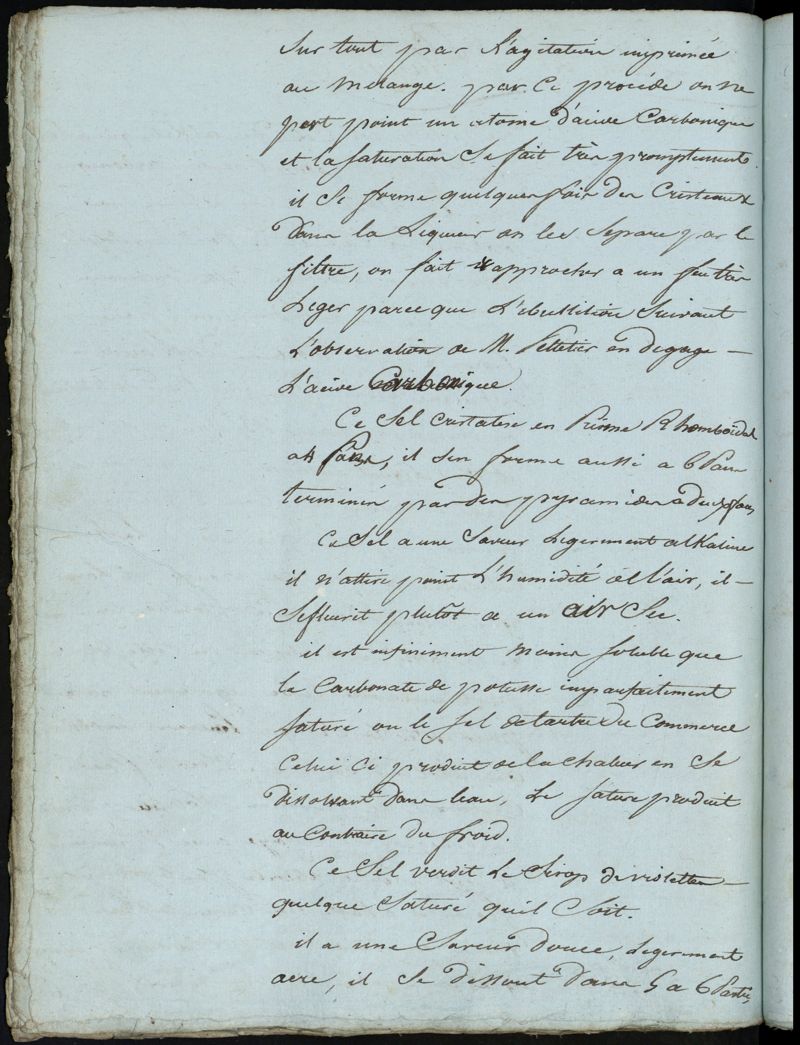 sur tout par l'agitation imprimée
au mélange. par ce procédé on ne
pert point un atome d'acide Carbonique
et la saturation se fait très promptement.
il se forme quelques fois des Cristeaux
dans la Liqueur on les separe par le
filtre, on fait rapprocher a un feu très
Leger parce que L'ebullition suivant
L'observation de M. Pelletier en degage –
L'acide Carbonique.
Ce Sel cristalise en Prisme Rhomboïdal
a 4 Pans, il s'en forme aussi a 6 Pans
terminés par des pyramides a deux faces
Ce Sel a une saveur Legerement alkaline
il n'attire point L'humidité de l'air, il –
s'efleurit plutôt a un air sec.
il est infiniment moins soluble que
le Carbonate de potasse imparfaitement
saturé ou le sel de tartre du Commerce
Celui ci produit de la chaleur en se
dissolvant dans l'eau, Le saturé produit
au Contraire du froid.
Ce Sel verdit Le Sirop de violettes –
quelque saturé qu'il soit.
il a une saveur douce, Legerement
acre, il se dissout dans 5 a 6 Parties